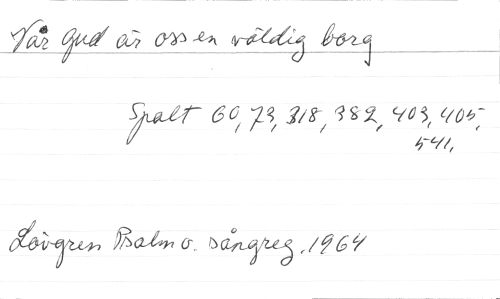 Vår Gud är oss en väldig borg
Spalt 60, 73, 318, 382, 403, 405,
541,
Lövgren Psalm o. sångreg. 1964